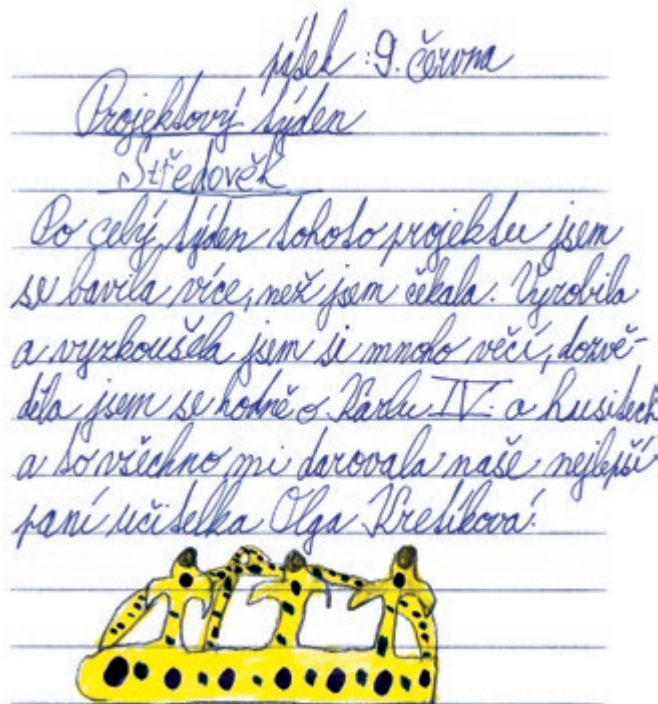 pátek 9. června
Projektový týden
Středověk
Po celý týden tohoto projektu jsem
se bavila více, než jsem čekala. Vyrobila
a vyzkoušela jsem si mnoho věcí, dozvě-
děla jsem se hodně o Karlu IV. a husitech
a to všechno mi darovala naše nejlepší
paní učitelka Olga Kretíková.